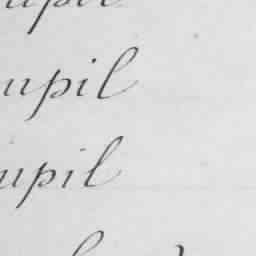 upil
upil
upil